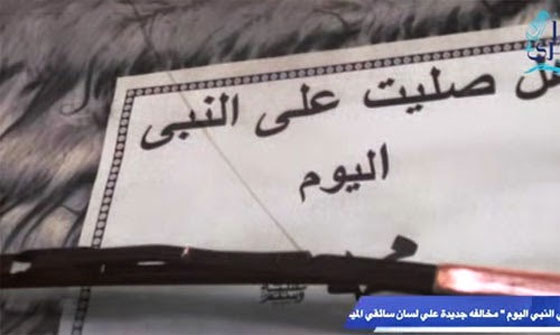 هل صليت على النبى
اليوم
النبي اليوم " مخالفه جديدة علي لسان سائقي المي